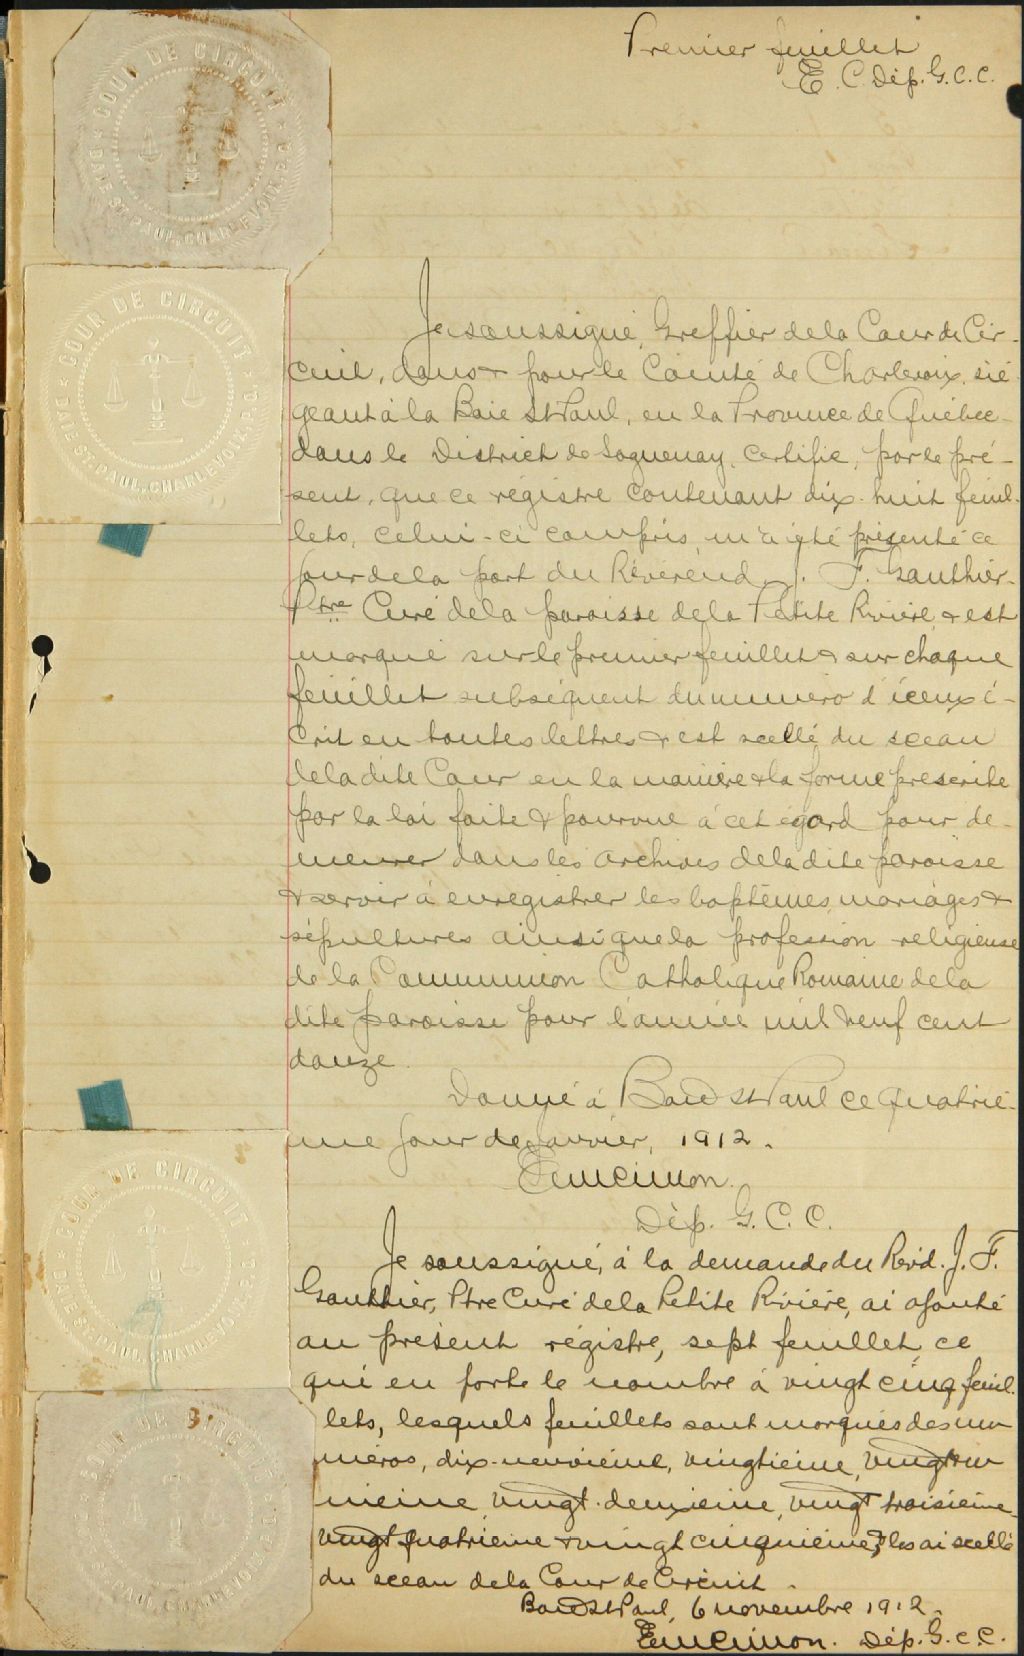 Premier feuillet
E. C. Dép. G. C. C.
COUR DE CIRCUIT
BAIE ST. PAUL, CHARLEVOIX, P.Q.
COUR DE CIRCUIT
BAIE ST. PAUL, CHARLEVOIX, P.Q.
Je soussigné, Greffier de la Cour de Cir-
cuit, dans & pour le Comté de Charlevoix, sié-
geant à la Baie St Paul, en la Province de Québec
dans le District de Saguenay, certifie, par le pré-
sent, que ce régistre contenant dix-huit feuil-
lets, celui-ci compris, m'a été présenté ce
jour de la part du Révérend J. F. Gauthier
Ptre Curé de la paroisse de la Petite Rivière, & est
marqué sur le premier feuillet & sur chaque
feuillet subséquent du numéro d'iceux é-
crit en toutes lettres & est scellé du sceau
de la dite Cour en la manière & la forme prescrite
par la loi faite & pourvue à cet égard pour de-
meurer dans les archives de la dite paroisse
& servir à enregistrer les baptêmes, mariages &
sépultures ainsi que la profession religieuse
de la Communion Catholique Romaine de la
dite paroisse pour l'année mil neuf cent
douze.
Donné à Baie St Paul ce quatriè-
me jour de janvier, 1912.
Emcimon.
Dép. G. C. C.
COUR DE CIRCUIT
BAIE ST. PAUL, CHARLEVOIX, P.Q.
Je soussigné, à la demande du Révd. J. F.
Gauthier, Ptre Curé de la Petite Rivière, ai ajouté
au présent régistre, sept feuillet, ce
qui en porte le nombre à vingt cinq feuil-
lets, lesquels feuillets sont marqués des nu
méros, dix-neuvième, vingtième, vingt un
nième, vingt-deuxième, vingt troisième
vingt quatrième & vingt cinquième, & les ai scellé
du sceau de la Cour de Circuit.
Baie St Paul, 6 novembre 1912.
Emcimon. Dép. G. C. C.
COUR DE CIRCUIT
BAIE ST. PAUL, CHARLEVOIX, P.Q.